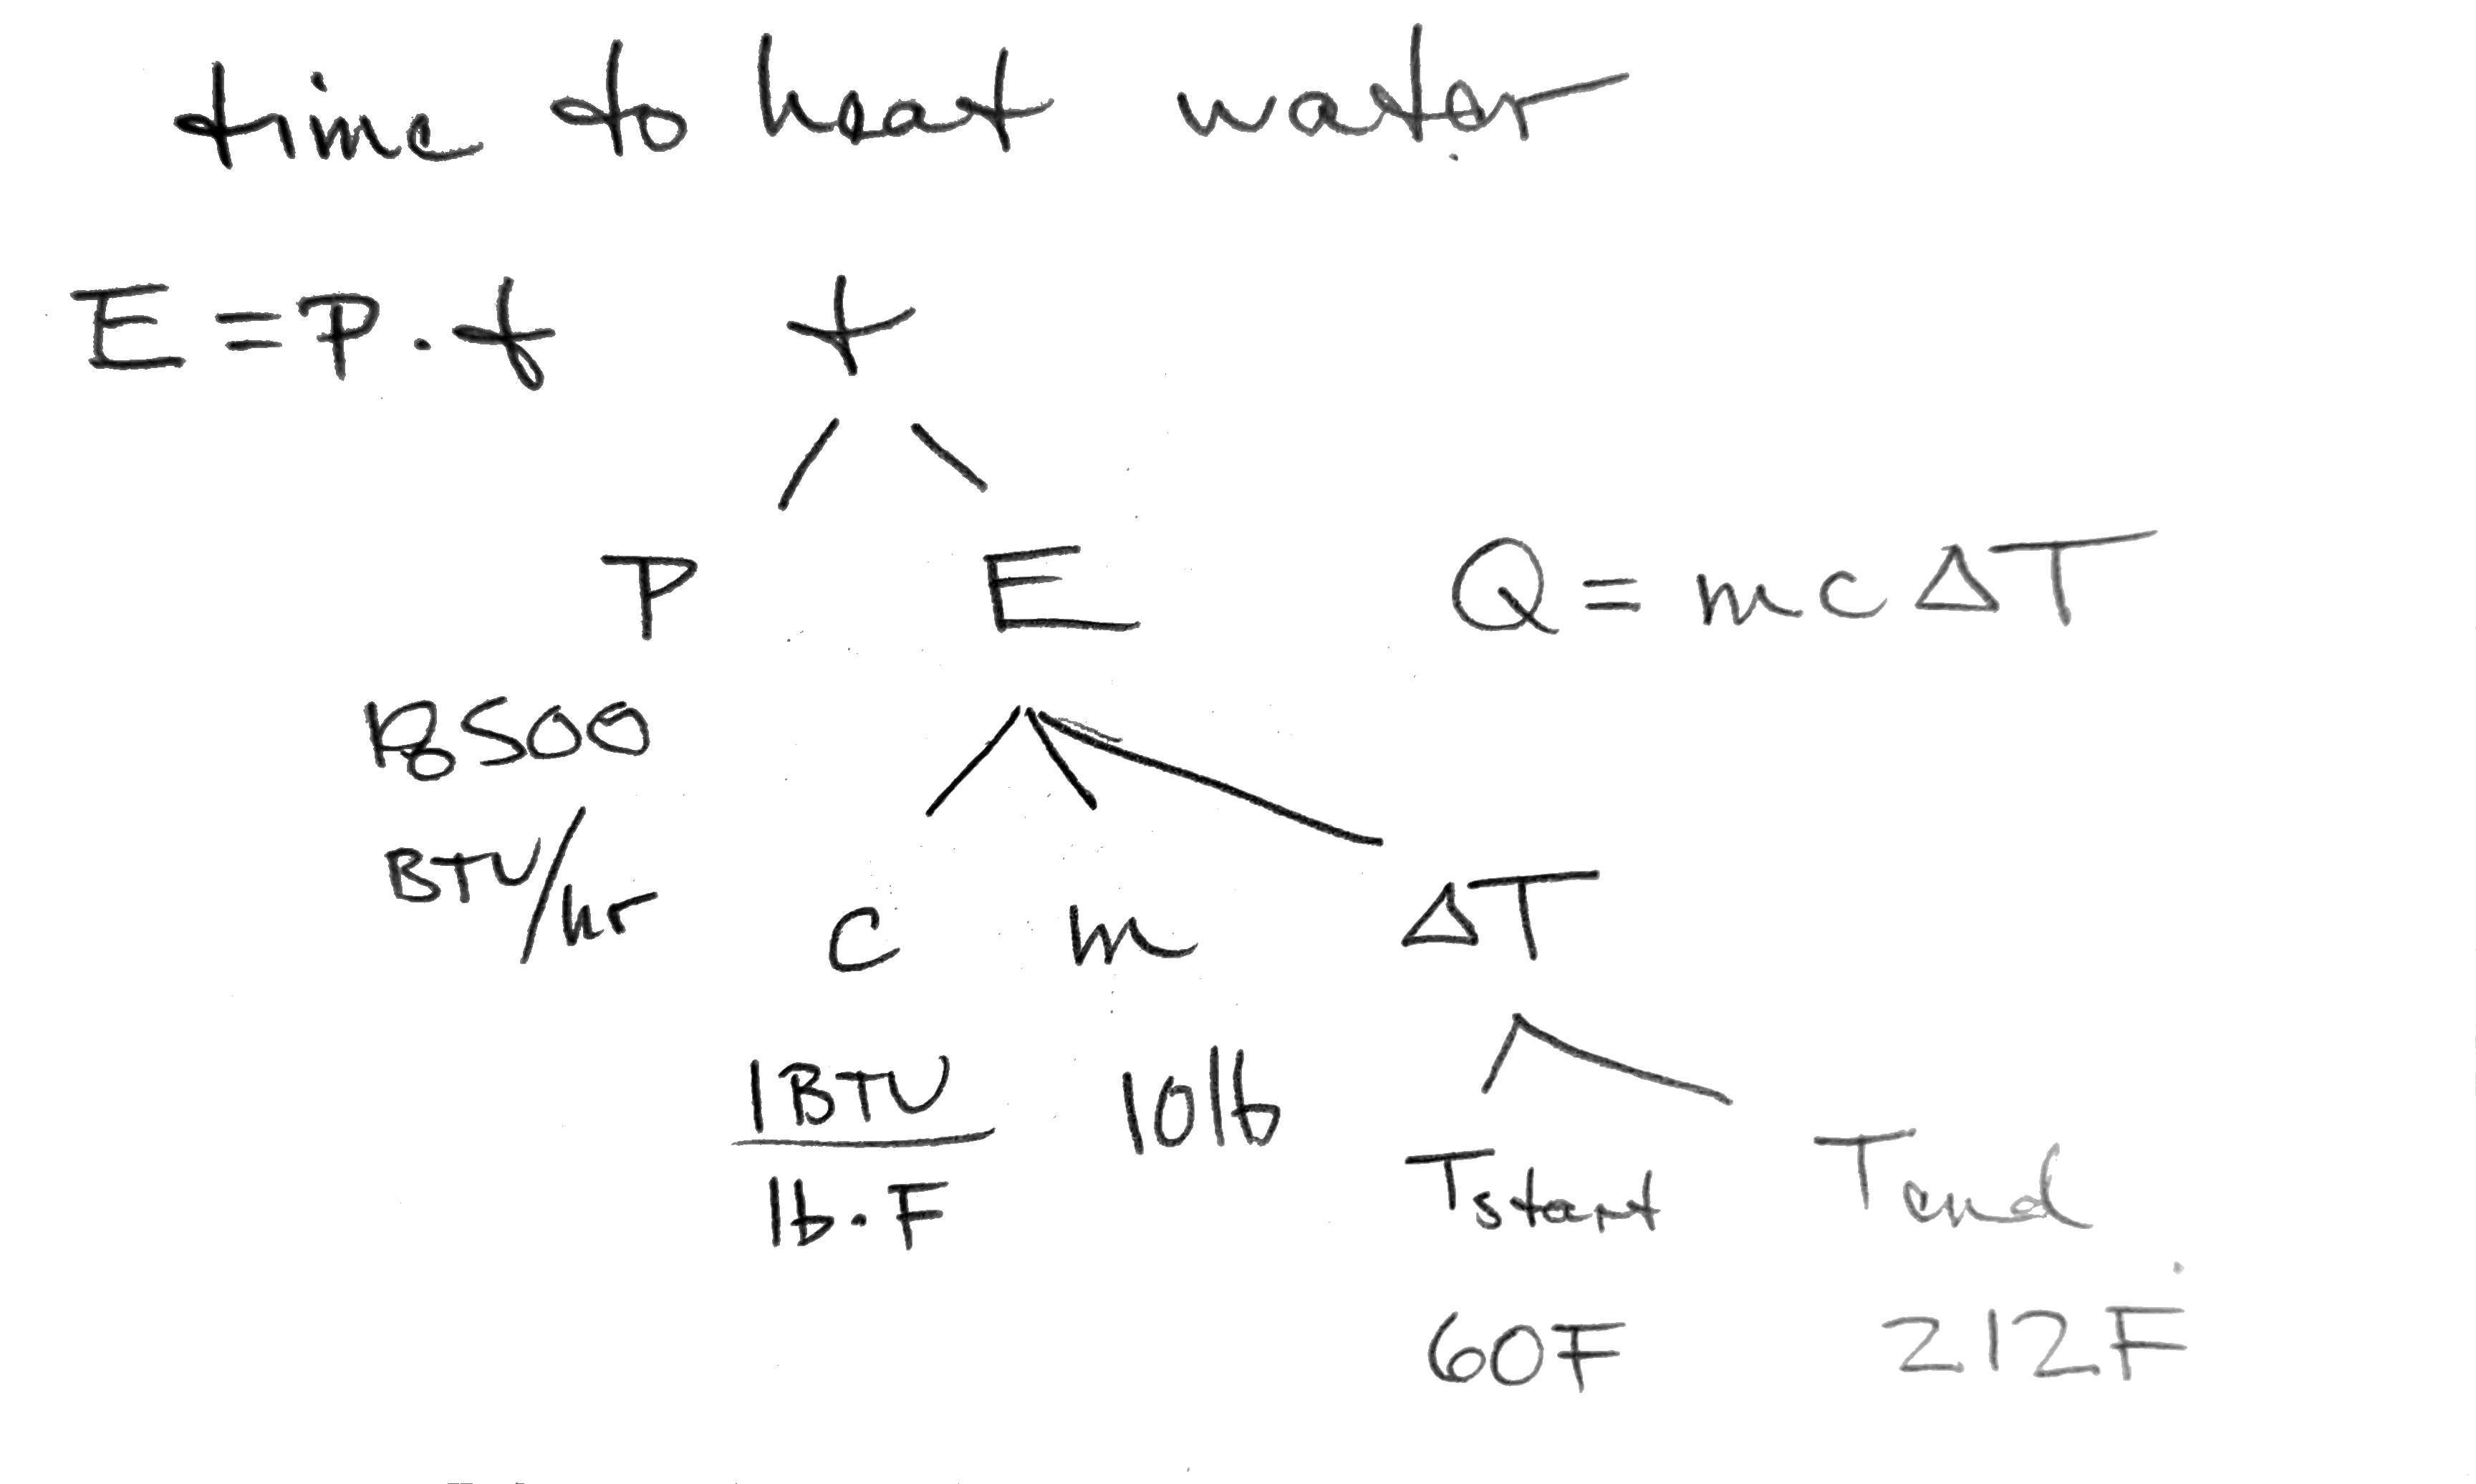 time to heat water
E = P · t
t
P
E
Q = mcΔT
18500
BTU/hr
C
m
ΔT
1BTU
lb·F
10lb
Tstart
Tend
60F
212F